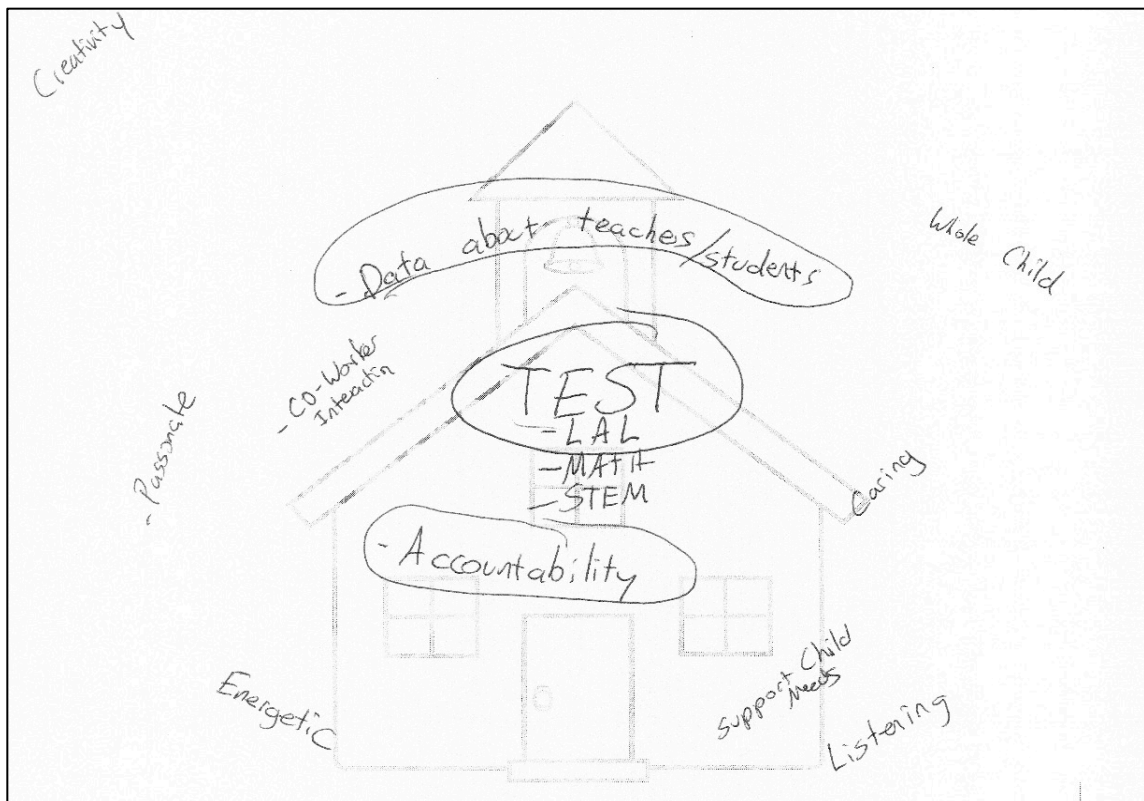 Creativity
- Data about teaches/students
Whole Child
- CO-Worker
Interactin
TEST
- LAL
- MATH
- STEM
- Passonate
Caring
- Accountability
Energetic
support Child
Needs
Listening